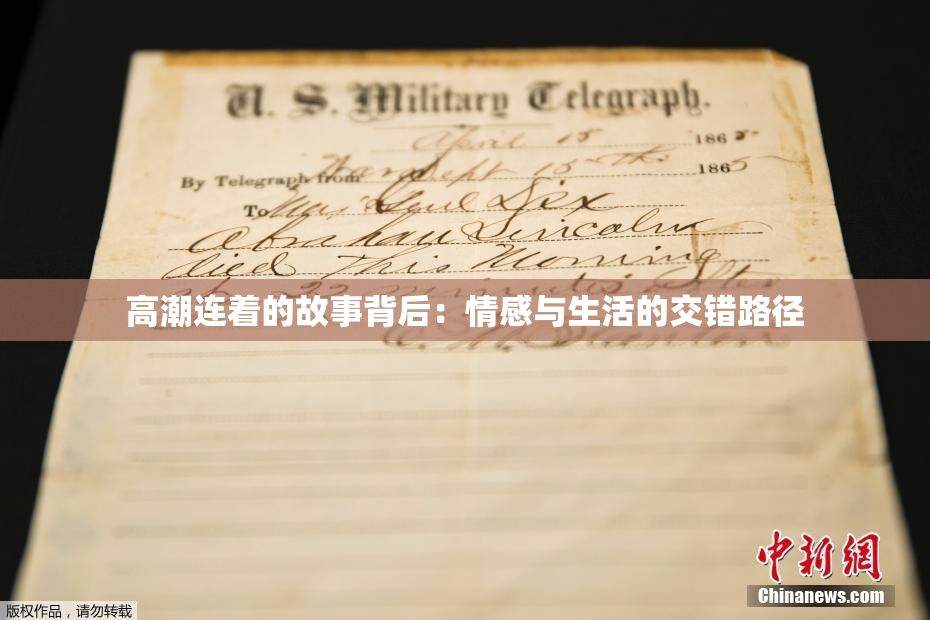 U. S. Military Telegraph.
April 15 1865
By Telegraph from War Dept 15th 1865
To Maj Genl Dix
Abraham Lincoln
died This Morning
at 22 minutes after
高潮连着的故事背后：情感与生活的交错路径
E. M. Stanton
中新网
Chinanews.com
版权作品，请勿转载